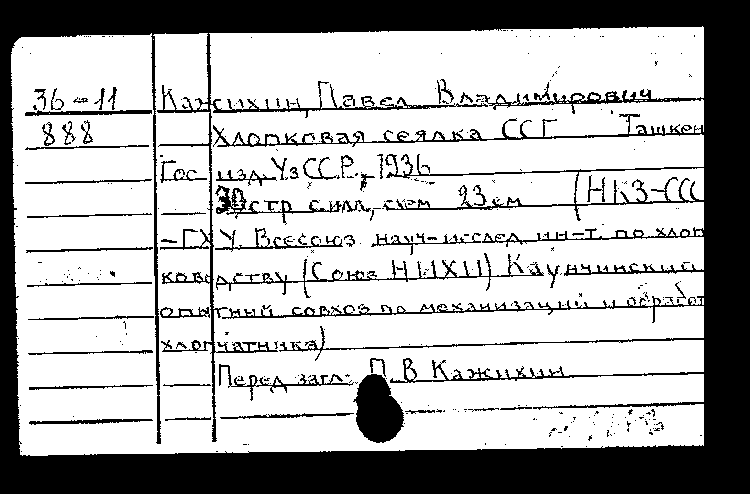 36-11 Кажихин, Павел Владимирович
888 Хлопковая сеялка ССГ Ташкен
Гос изд. УзССР, 1936
30 стр с илл, схем 23 см (НКЗ-ССС
-ГХУ. Всесоюз науч-исслед ин-т. по хлоп
ководству (Союз НИХИ) Каунчинский
опытный совхоз по механизаций и обработ
хлопчатника)
Перед загл: П. В Кажихин